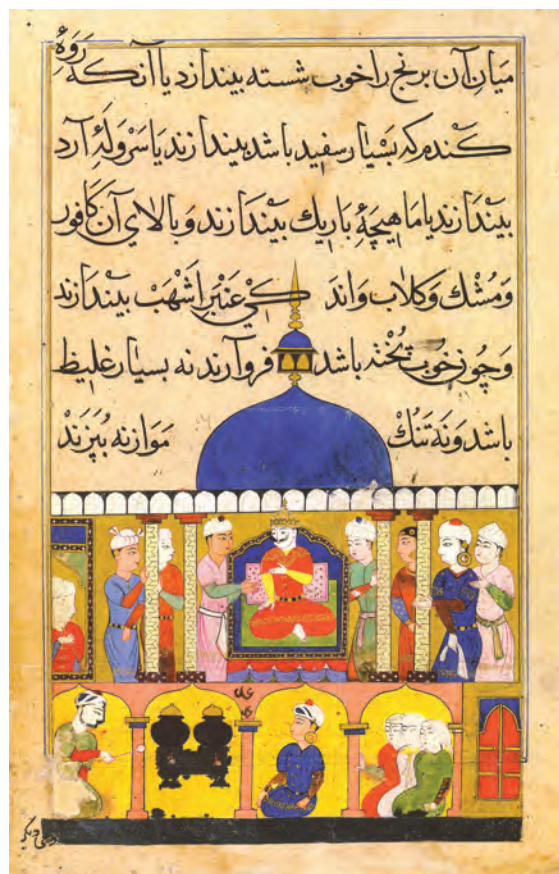 میان آن برنج را خوب شسته بیندازد یا آنکه رَوَهٔ
کندم که بسیار سفید باشد بیندازند یا سَر وَلَهٔ آرد
بیندازند یا ماهیچهٔ باریك بیندازند و بالای آن کافور
و مُشك و کلاب و اندَکی عنبر اَشهَب بیندازند
و چون خوب پُخته باشد فرو آرند نه بسیار غلیظ
باشد و نه تَنُك موازنه بپزند
دیکر